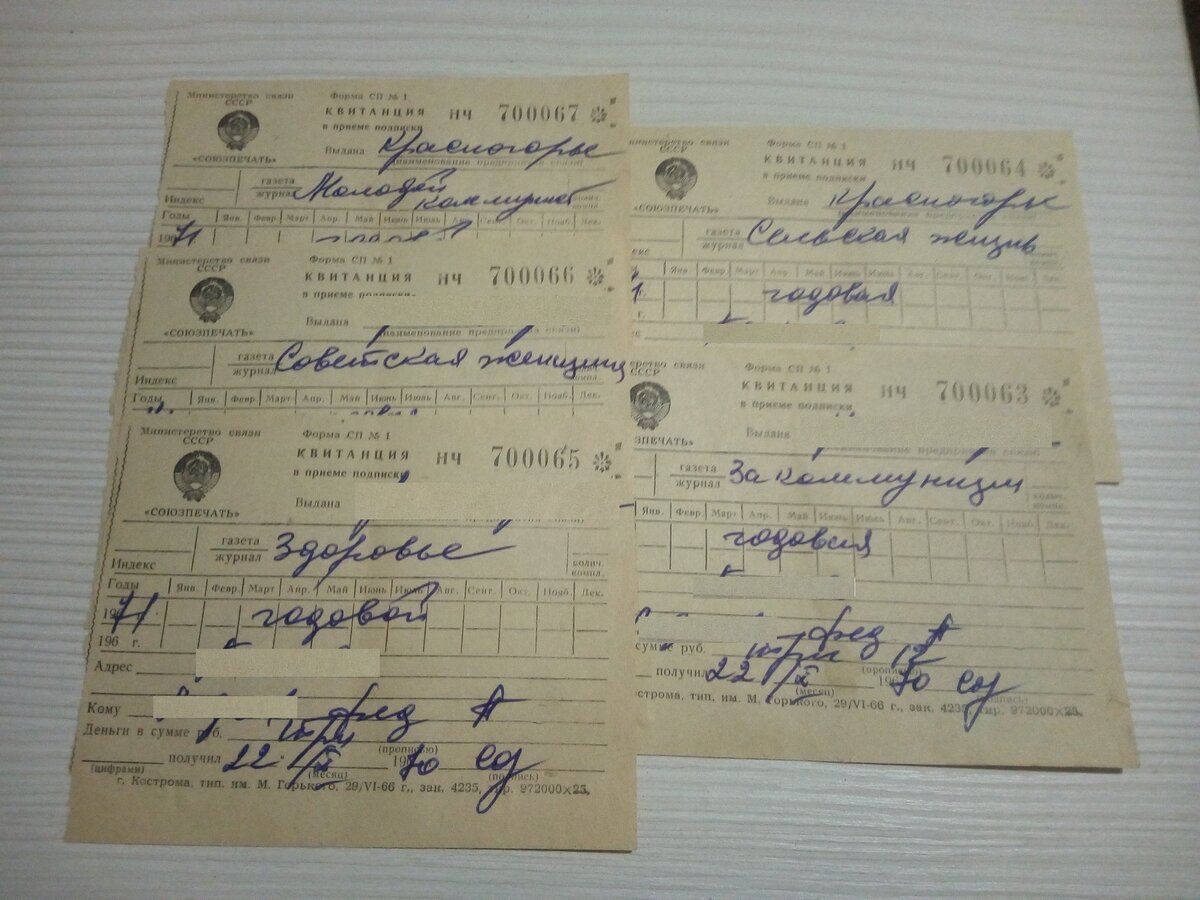 Министерство связи
СССР
«СОЮЗПЕЧАТЬ»
Форма СП № 1
КВИТАНЦИЯ НЧ 700067
в приеме подписки
Выдана Красногорье
(наименование предприятия связи)
газета
журнал Молодой
коммунист
Индекс
Годы Янв. Февр. Март Апр. Май Июнь Июль Авг. Сент. Окт. Нояб. Дек.
1971
Министерство связи
СССР
«СОЮЗПЕЧАТЬ»
Форма СП № 1
КВИТАНЦИЯ НЧ 700066
в приеме подписки
Выдана
(наименование предприятия связи)
газета
журнал Советская женщина
Индекс
Годы Янв. Февр. Март Апр. Май Июнь Июль Авг. Сент. Окт. Нояб. Дек.
Министерство связи
СССР
«СОЮЗПЕЧАТЬ»
Форма СП № 1
КВИТАНЦИЯ НЧ 700065
в приеме подписки
Выдана
газета
журнал Здоровье
колич.
компл.
Индекс
Годы Янв. Февр. Март Апр. Май Июнь Июль Авг. Сент. Окт. Нояб. Дек.
1971 годовой
196 г.
Адрес
Кому
Деньги в сумме руб. три
(прописью)
получил 22 X 1970
(цифрами) (месяц) (подпись)
г. Кострома, тип. им. М. Горького, 29/VI-66 г., зак. 4235, тир. 972000×25.
министерство связи
СССР
«СОЮЗПЕЧАТЬ»
Форма СП № 1
КВИТАНЦИЯ НЧ 700064
в приеме подписки
Выдана Красногорье
газета
журнал Сельская жизнь
Янв. Февр. Март Апр. Май Июнь Июль Авг. Сент. Окт. Нояб. Дек.
годовая
г.
СССР
Форма СП № 1
КВИТАНЦИЯ НЧ 700063
в приеме подписки
Выдана
газета
журнал За коммунизм
колич.
компл.
Янв. Февр. Март Апр. Май Июнь Июль Авг. Сент. Окт. Нояб. Дек.
годовая
сумме руб. три
(прописью)
получил 22 X 1970
(месяц)
острома, тип. им. М. Горького, 29/VI-66 г., зак. 4235, тир. 972000×25.